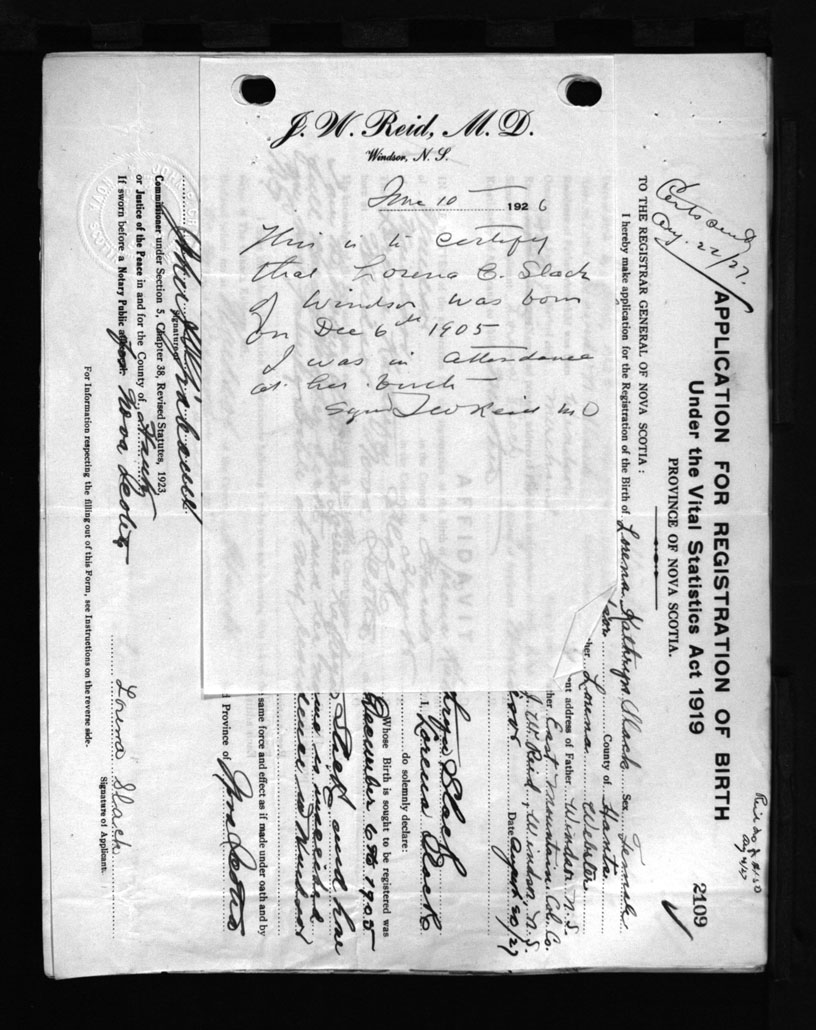 J. W. Reid, M. D.
Windsor, N. S.
June 10 1926
This is to certify
that Lorena C. Slack
of Windsor was born
on Dec 6th 1905
I was in attendance
at her birth
J W Reid M D
Certs sent
Aug. 22/27.
2109
APPLICATION FOR REGISTRATION OF BIRTH
Under the Vital Statistics Act 1919
PROVINCE OF NOVA SCOTIA.
TO THE REGISTRAR GENERAL OF NOVA SCOTIA :
I hereby make application for the Registration of the Birth of Lorena Kathryn Slack Sex Female
County of Hants
Lorena Webster
nt address of Father Windsor N.S.
East Mountain Col. Co.
J. W. Reid, Windsor, N.S.
1905 Date August 20/27
AFFIDAVIT
ryn Slack
I, Lorena Slack
do solemnly declare:
Whose Birth is sought to be registered was
December 6th 1905
Slack and her
name is married
Windsor
same force and effect as if made under oath and by
d Province of Nova Scotia
Signature of
Commissioner under Section 5, Chapter 38, Revised Statutes, 1923,
or Justice of the Peace in and for the County of Hants
If sworn before a Notary Public Nova Scotia
Lorena Slack
Signature of Applicant.
For Information respecting the filling out of this Form, see Instructions on the reverse side.